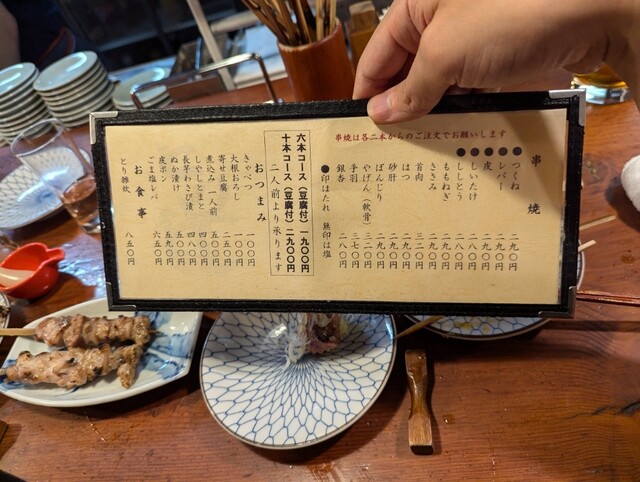 串焼は各二本からのご注文でお願いします
串焼
●つくね 二九〇円
●レバー 二九〇円
●皮 二九〇円
●しいたけ 二八〇円
●ししとう 二八〇円
ももねぎ 二九〇円
ささみ 二九〇円
首肉 二九〇円
はつ 二九〇円
砂肝 二九〇円
ぼんじり 二九〇円
やげん（軟骨） 三二〇円
手羽 三七〇円
銀杏 二八〇円
●印はたれ 無印は塩
六本コース（豆腐付）一九〇〇円
十本コース（豆腐付）二九〇〇円
二人前より承ります
おつまみ
きゃべつ 一〇〇円
大根おろし 一〇〇円
寄せ豆腐 二五〇円
煮込み一人前 五〇〇円
しやしとまと 四〇〇円
長芋わさび漬 四八〇円
ぬか漬け
皮ポン
ごま塩 六五〇円
お食事
とり雑炊 八五〇円